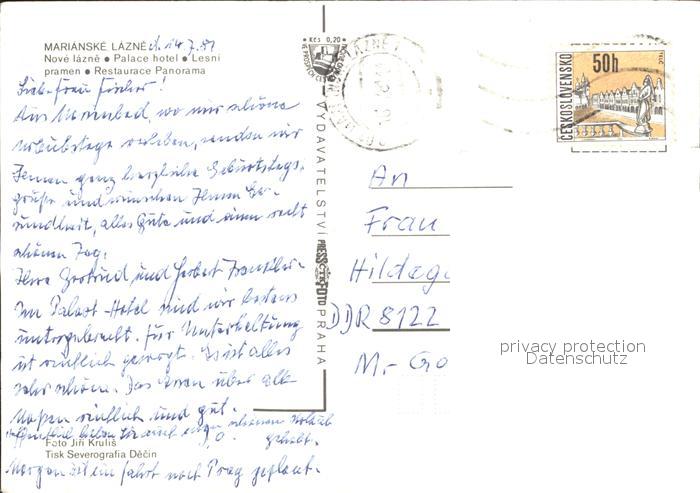 MARIÁNSKE LÁZNĚ d. 14.7.81
Nové lázně ● Palace hotel ● Lesní
pramen ● Restaurace Panorama
Liebe Frau Fischer!
Aus Marienbad, wo wir schöne
Urlaubstage verleben, senden wir
Ihnen ganz herzliche Geburtstags-
grüße und wünschen Ihnen Ge-
sundheit, alles Gute und einen recht
schönen Tag.
Ihre Gertrud und Herbert
Im Palast-Hotel sind wir bestens
untergebracht. Für Unterhaltung
ist reichlich gesorgt. Es ist alles
sehr schön. Das Essen über alle
Maßen reichlich und gut.
Hoffentlich haben Sie auch einen schönen Urlaub
gehabt.
Foto Jiří Kruliš
Tisk Severografia Děčín
Morgen ist ein Fahrt nach Prag geplant.
Kčs 0,20
VYDAVATELSTVÍ PRESSFOTO PRAHA
LÁZNĚ
ČESKOSLOVENSKO
50h
TELČ
An
Frau
Hildeg
DDR 8122
privacy protection
Datenschutz